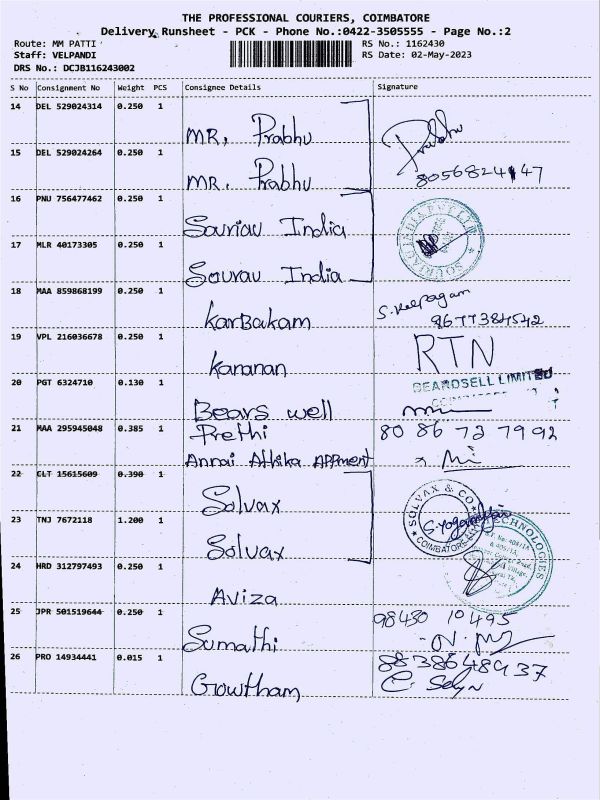 THE PROFESSIONAL COURIERS, COIMBATORE
Delivery Runsheet - PCK - Phone No.:0422-3505555 - Page No.:2
Route: MM PATTI
RS No.: 1162430
Staff: VELPANDI
RS Date: 02-May-2023
DRS No.: DCJB116243002
S No Consignment No Weight PCS Consignee Details Signature
14 DEL 529024314 0.250 1
MR. Prabhu
Prabhu
15 DEL 529024264 0.250 1
MR. Prabhu
8056824147
16 PNU 756477462 0.250 1
Souriau India
17 MLR 40173305 0.250 1
SOURIAU INDIA PVT LTD
Sourau India
18 MAA 859868199 0.250 1
KarBakam
S. Kalpagam
8677384542
19 VPL 216036678 0.250 1
Karanan
RTN
20 PGT 6324710 0.130 1
BEARDSELL LIMITED
Bears well
21 MAA 295945048 0.385 1
Prethi
80 86 72 7992
Annai Athika APPment
22 CLT 15615609 0.390 1
Solvax
SOLVAX & CO
COIMBATORE
23 TNJ 7672118 1.200 1
Solvax
TECHNOLOGIES
24 HRD 312797493 0.250 1
Aviza
25 JPR 501519644 0.250 1
98430 10495
Sumathi
26 PRO 14934441 0.015 1
8838648937
Gowtham